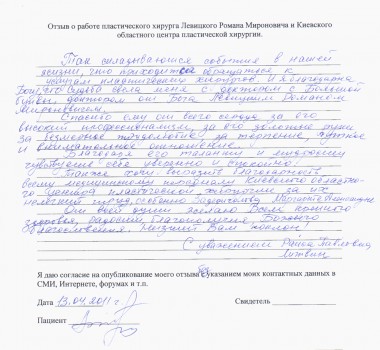 Отзыв о работе пластического хирурга Левицкого Романа Мироновича и Киевского
областного центра пластической хирургии.
Так складываются события в нашей
жизни, что приходится обращаться к
услугам пластических хирургов. И я благодарна
Богу, что Судьба свела меня с доктором с Большой
буквы, доктором от Бога Левицким Романом
Мироновичем.
Спасибо ему от всего сердца за его
высокий профессионализм, за его золотые руки
За безмерное трудолюбие, за терпение, чуткое
и внимательное отношение.
Благодаря его таланту и
чувствуешь себя уверенно и спокойно!
Также хочу выразить благодарность
всему медицинскому персоналу Киевского областно-
го Центра пластической хирургии за их
нелегкий труд, особенно Маргарите
От всей души желаю Всем полного
здоровья, радости, благополучия, Божьего
благословения. Низкий Вам поклон!
С уважением Павловна
Я даю согласие на опубликование моего отзыва с указанием моих контактных данных в
СМИ, Интернете, форумах и т.п.
Дата 13.04.2011 г. Свидетель
Пациент